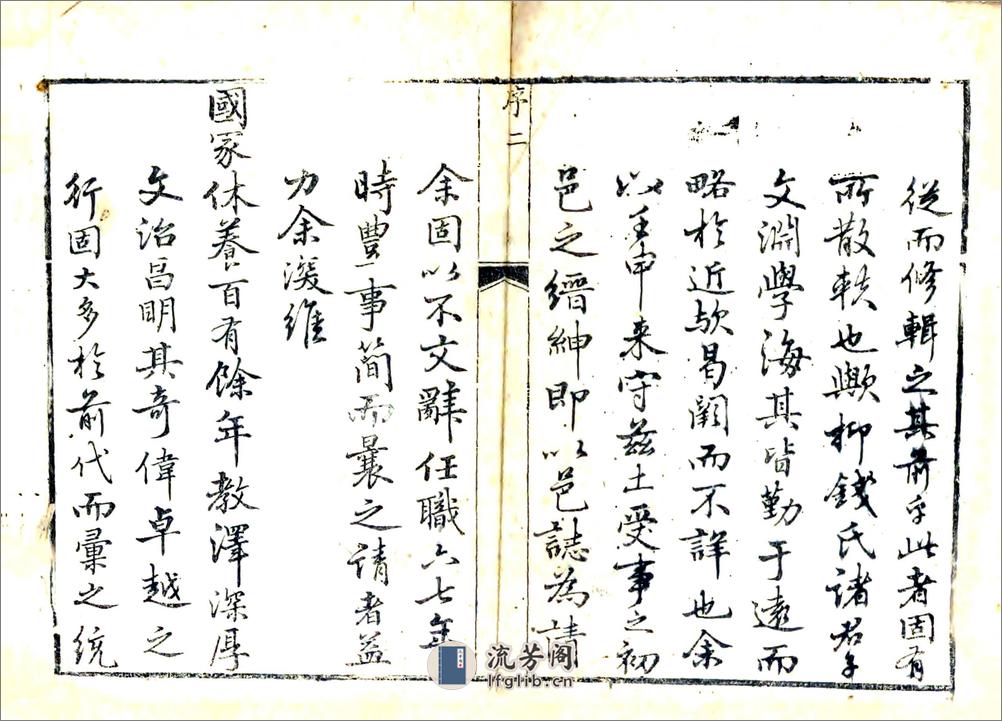 從而修輯之其前乎此者固有
所散軼也歟抑錢氏諸君子
文淵學海其皆勤于遠而
略於近歟曷闕而不詳也余
以壬申来守茲土受事之初
邑之縉紳即以邑誌為請
序二
余固以不文辭任職六七年
時豐事簡而曩之請者益
力余湥維
國家休養百有餘年教澤深厚
文治昌明其奇偉卓越之
行固大多於前代而彙之統
流芳阁
lfglib.cn